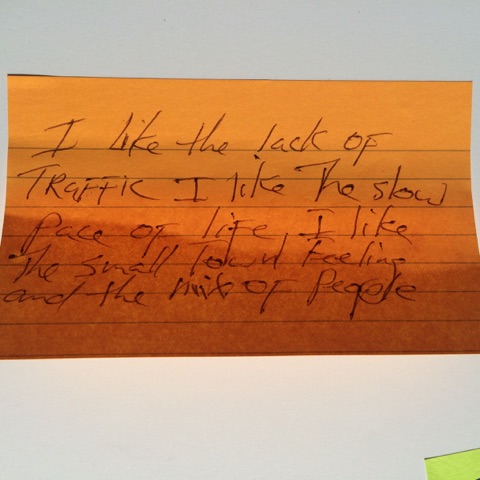 I like the lack of
TRAFFIC I like The slow
Pace of life, I like
The small Town Feeling
and the mix of People